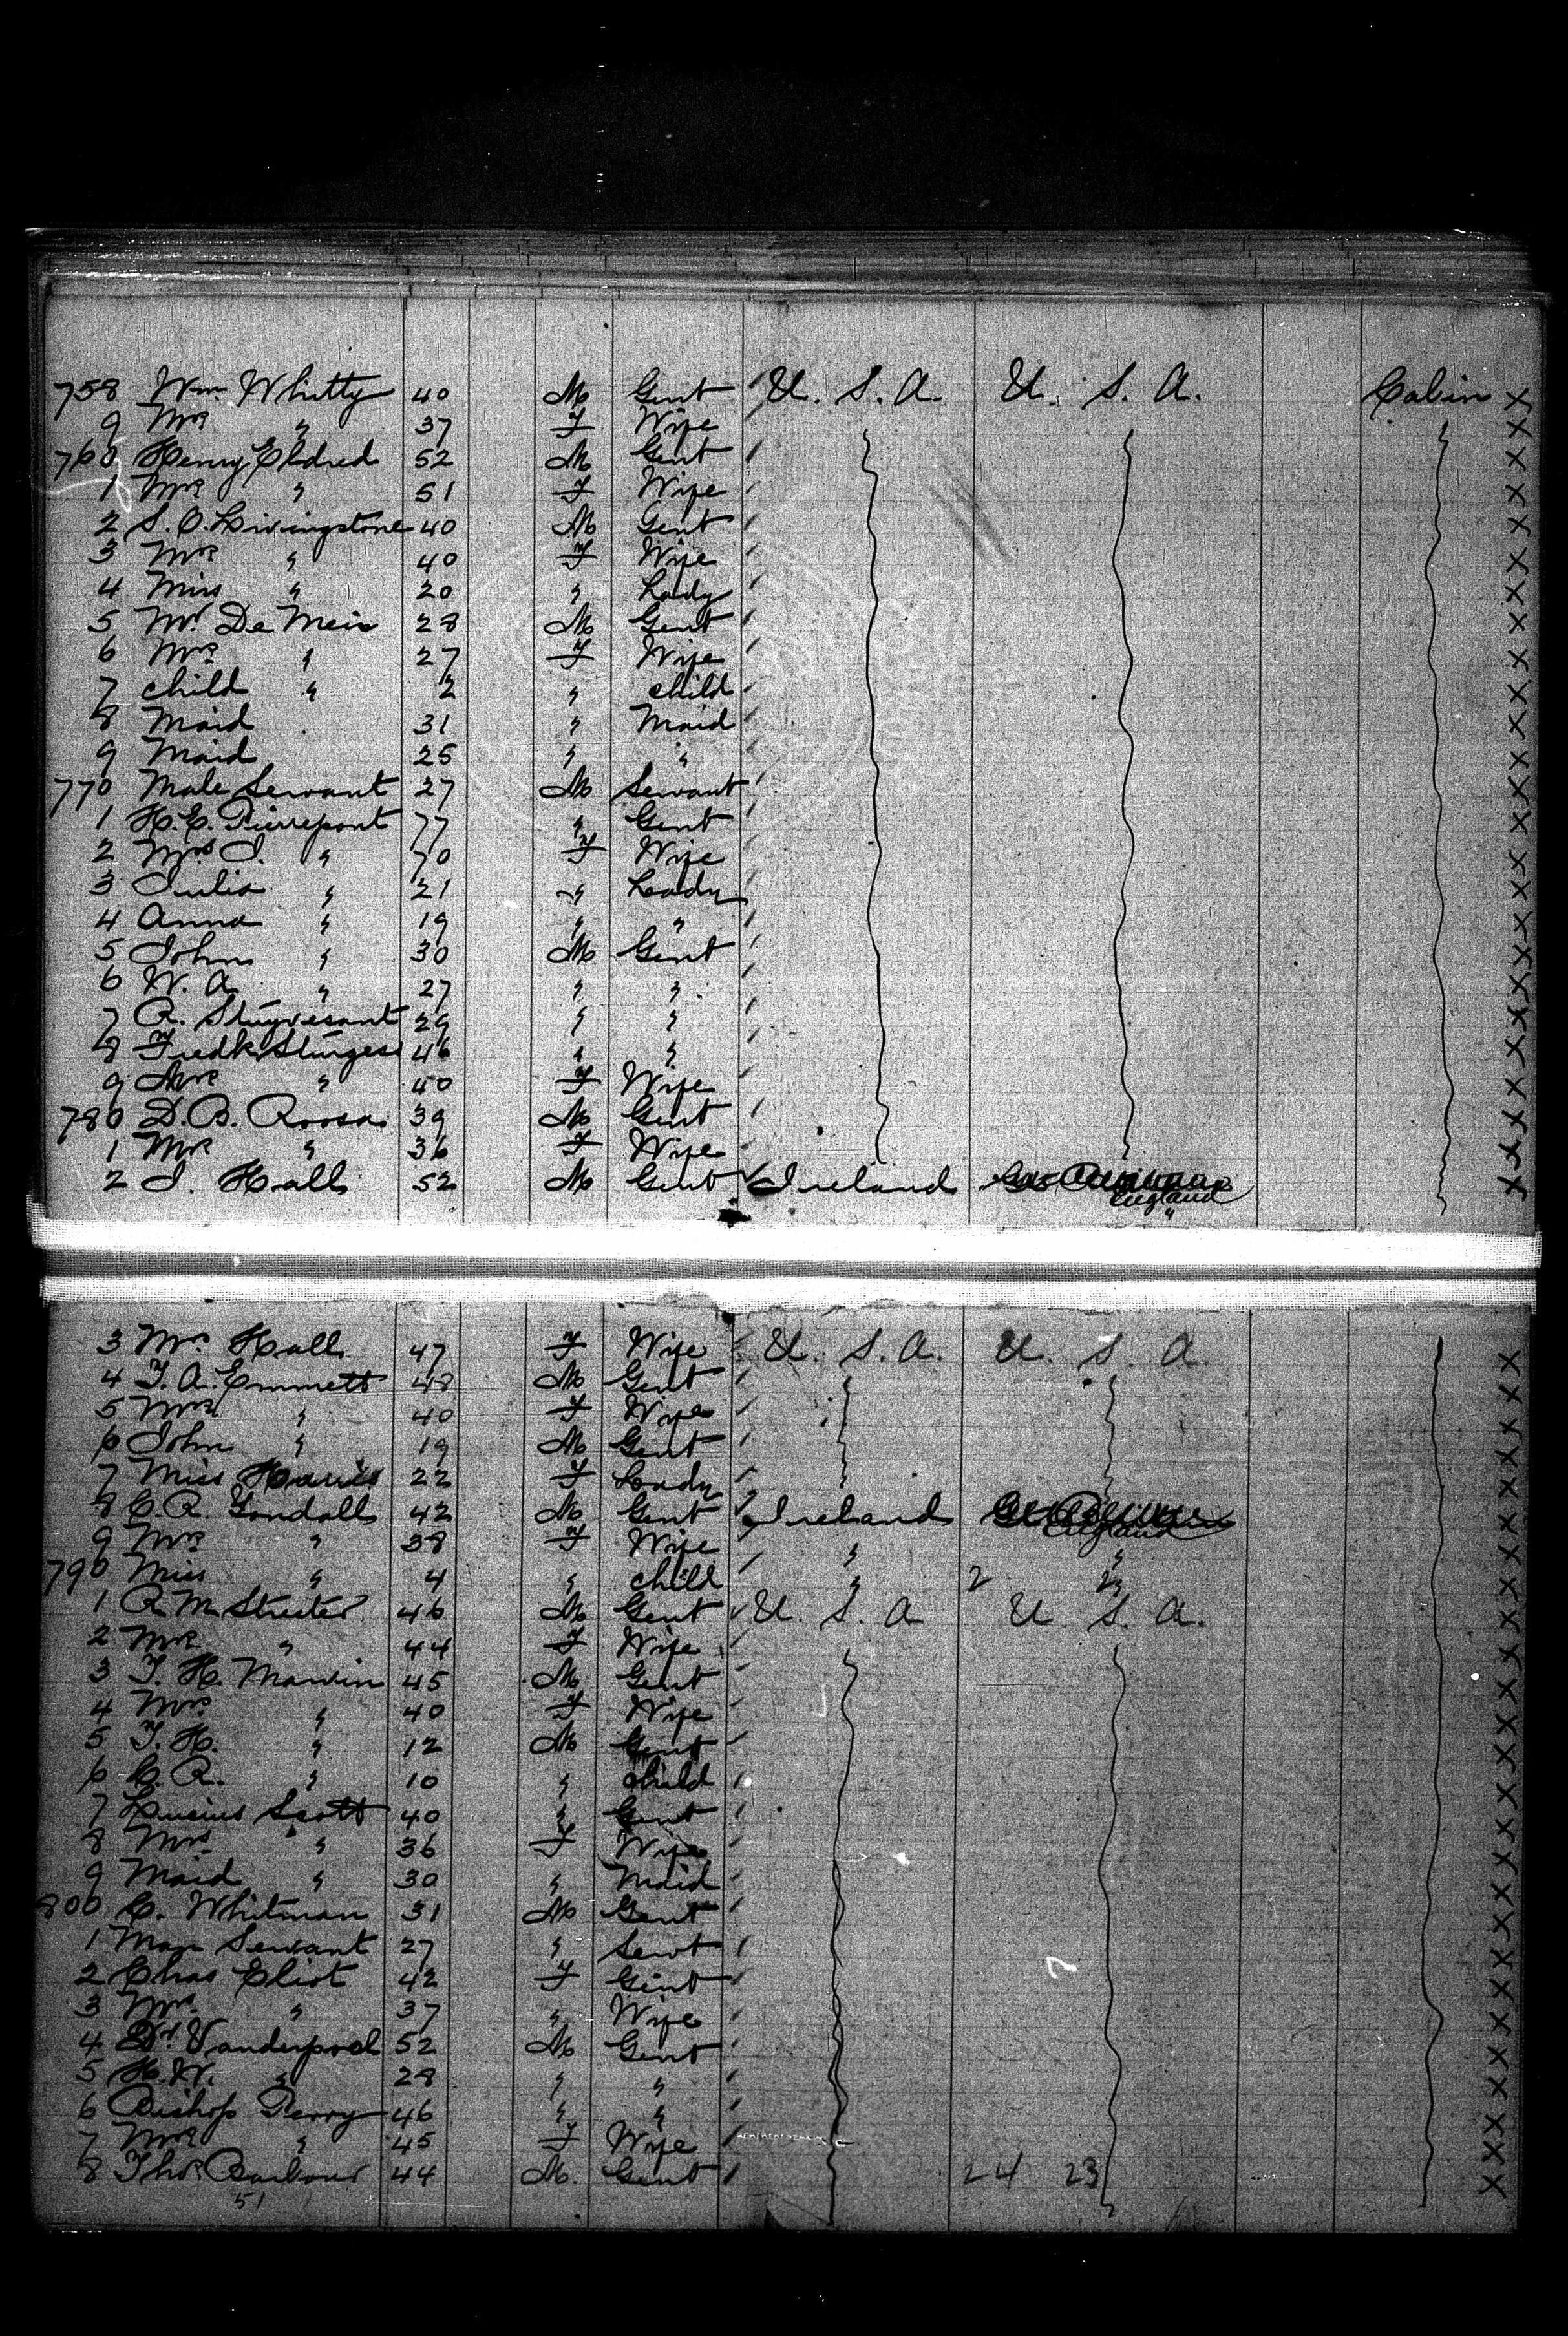 758 Wm. Whitty 40 M Gent U. S. A. U. S. A. Cabin X
9 Mrs " 37 F Wife X
760 Henry Eldred 52 M Gent X
1 Mrs " 51 F Wife X
2 S. O. Livingstone 40 M Gent X
3 Mrs " 40 F Wife X
4 Miss " 20 " Lady X
5 Mr. De Meir 28 M Gent X
6 Mrs " 27 F Wife X
7 child " 2 " child X
8 Maid 31 " Maid X
9 Maid 25 " " X
770 Male Servant 27 M Servant X
1 H. E. Pierrepont 77 " Gent X
2 Mrs J. " 70 F Wife X
3 Julia " 21 " Lady X
4 Anna " 19 " " X
5 John " 30 M Gent X
6 W. A. " 27 " " X
7 A. Stuyvesant 29 " " X
8 Fredk Sturgess 46 " " X
9 Mrs " 40 F Wife X
780 D. B. Roosa 39 M Gent X
1 Mrs " 36 F Wife X
2 J. Hall 52 M Gent Ireland England X
"
3 Mrs. Hall 47 F Wife U. S. A. U. S. A. X
4 T. A. Emmett 48 M Gent X
5 Mrs " 40 F Wife X
6 John " 19 M Gent X
7 Miss Harris 22 F Lady X
8 C. R. Yandall 42 M Gent Ireland England X
9 Mrs " 38 F Wife " " X
790 Miss " 4 " child " 2 2 " X
1 R. M. Streeter 46 M Gent U. S. A U S. A. X
2 Mrs " 44 F Wife X
3 T. H. Marvin 45 M Gent X
4 Mrs. " 40 F Wife X
5 T. H. " 12 M Gent X
6 C. R. " 10 " child X
7 Lucius Scott 40 " Gent X
8 Mrs " 36 F Wife X
9 Maid " 30 " Maid X
800 C. Whitman 31 M Gent X
1 Man Servant 27 " Servt X
2 Chas Eliot 42 F Gent X
3 Mrs. " 37 " Wife X
4 Dr. Vanderpoel 52 M Gent X
5 H. W. " 28 " " X
6 Bishop Perry 46 " " X
7 Mrs " 45 F Wife X
8 Thos Barbour 44 M. Gent 24 23 X
51